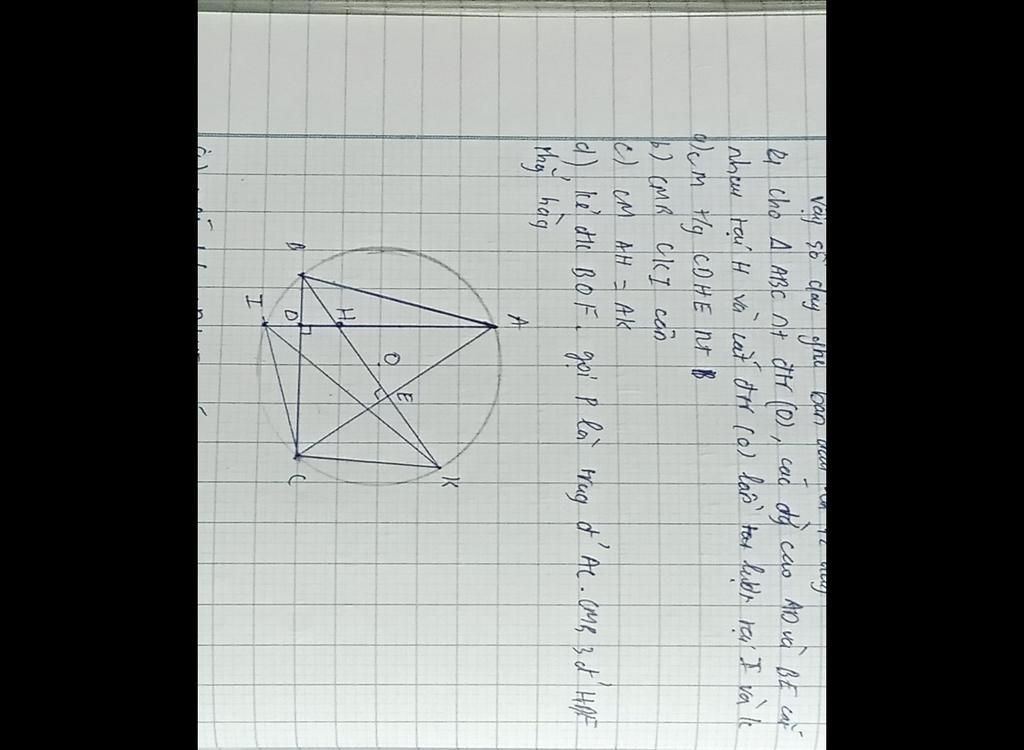 Vậy số dãy ghế ban đầu là 12 dãy
cho Δ ABC nt đtr (O), các đg cao AD và BE cắt
nhau tại H và cắt đtr (O) lần tại I và K
a) CM t/g CDHE nt
b) CMR CKI cân
c) CM AH = AK
d) kẻ đk BOF. gọi P là trug đ' AC. CMR 3 đ'
thẳg hàg
A
B
I
D
H
O
E
K
C